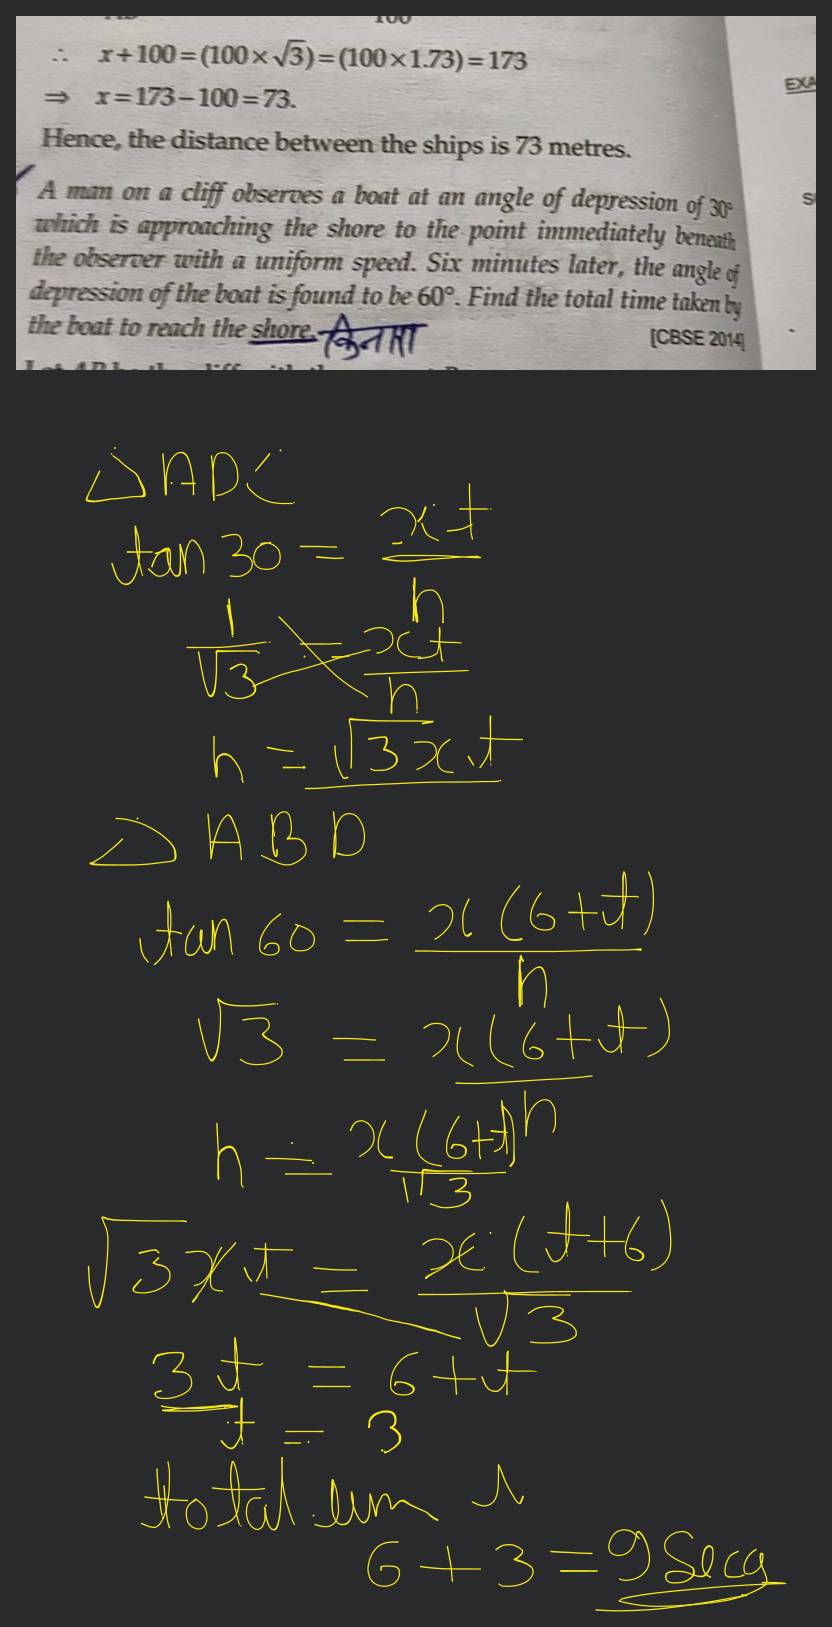 100
∴ x+100=(100×√3)=(100×1.73)=173
⇒ x=173−100=73.
EXA
Hence, the distance between the ships is 73 metres.
A man on a cliff observes a boat at an angle of depression of 30°
which is approaching the shore to the point immediately beneath
the observer with a uniform speed. Six minutes later, the angle of
depression of the boat is found to be 60°. Find the total time taken by
the boat to reach the shore. किनारा [CBSE 2014]
△ADC
tan 30 = xt/h
1/√3 = xt/h
h = √3xt
△ABD
tan 60 = x(6+t)/h
√3 = x(6+t)/h
h = x(6+t)/√3
√3xt = x(t+6)/√3
3t = 6+t
t = 3
total
6+3=9 Secs